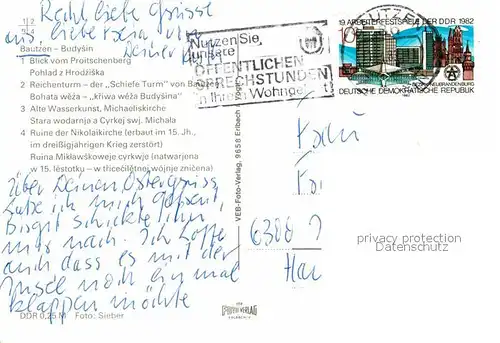 Recht liebe Grüsse
aus
Bautzen – Budyšin
1 Blick vom Proitschenberg
Pohlad z Hrodźiška
2 Reichenturm – der „Schiefe Turm" von
Bohata wěža – „křiwa wěža Budyšina"
3 Alte Wasserkunst, Michaeliskirche
Stara wodarnja a Cyrkej swj. Michała
4 Ruine der Nikolaikirche (erbaut im 15. Jh.,
im dreißigjährigen Krieg zerstört)
Ruina Mikławškoweje cyrkwje (natwarjena
w 15. lětstotku – w třicećilětnej wójnje zničena)
Über Deinen Ostergruss
habe ich mich gefreut,
Birgit schickte ihn
mir nach. Ich hoffe
auch dass es mit der
Insel noch einmal
klappen möchte
DDR 0,25 M Foto: Sieber
VEB-Foto-Verlag, 9658 Erlbach
Nutzen Sie
unsere
ÖFFENTLICHEN
SPRECHSTUNDEN
in Ihrem Wohngebiet
19. ARBEITERFESTSPIELE DER DDR 1982
10
NEUBRANDENBURG
DEUTSCHE DEMOKRATISCHE REPUBLIK
6300
privacy protection
Datenschutz
VERLAG